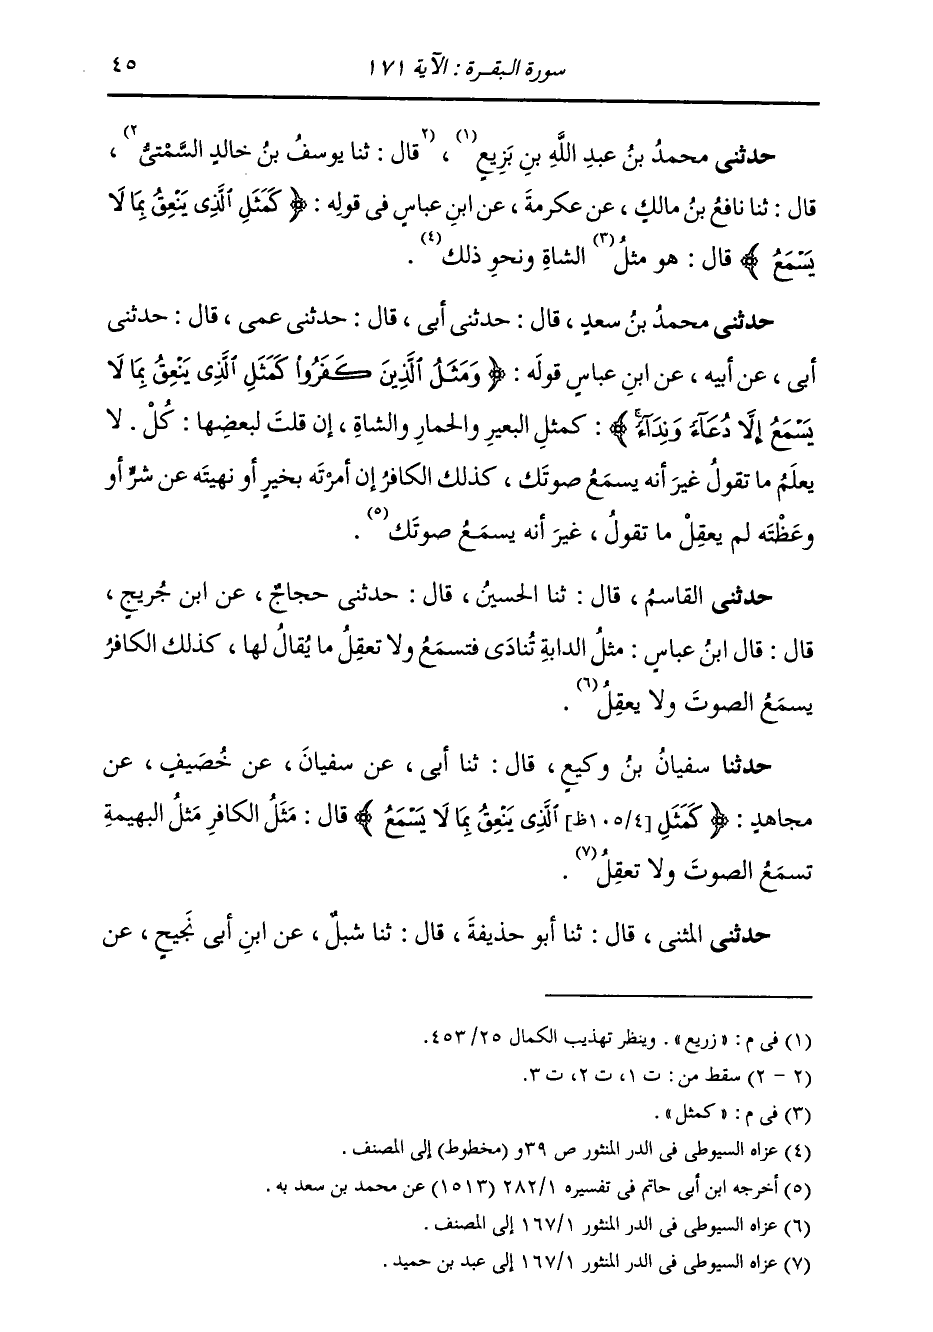 سورة البقرة : الآية ١٧١ ٤٥
حدثنى محمدُ بنُ عبدِ اللَّهِ بنِ بَزِيعٍ(١) ، (٢قال : ثنا يوسفُ بنُ خالدٍ السَّمْتىُّ٢) ،
قال : ثنا نافعُ بنُ مالكٍ ، عن عكرمةَ ، عن ابنِ عباسٍ فى قولِه : ﴿ كَمَثَلِ ٱلَّذِى يَنْعِقُ بِمَا لَا
يَسْمَعُ ﴾ قال : هو مثلُ(٣) الشاةِ ونحوِ ذلك(٤) .
حدثنى محمدُ بنُ سعدٍ ، قال : حدثنى أبى ، قال : حدثنى عمى ، قال : حدثنى
أبى ، عن أبيه ، عن ابنِ عباسٍ قولَه : ﴿ وَمَثَلُ ٱلَّذِينَ كَفَرُوا۟ كَمَثَلِ ٱلَّذِى يَنْعِقُ بِمَا لَا
يَسْمَعُ إِلَّا دُعَآءً وَنِدَآءً ﴾ : كمثلِ البعيرِ والحمارِ والشاةِ ، إن قلتَ لبعضِها : كُلْ . لا
يعلَمُ ما تقولُ غيرَ أنه يسمَعُ صوتَك ، كذلك الكافرُ إن أمرْتَه بخيرٍ أو نهيتَه عن شرٍّ أو
وعَظْتَه لم يعقِلْ ما تقولُ ، غيرَ أنه يسمَعُ صوتَك(٥) .
حدثنى القاسمُ ، قال : ثنا الحسينُ ، قال : حدثنى حجاجٌ ، عن ابنِ جُريجٍ ،
قال : قال ابنُ عباسٍ : مثلُ الدابةِ تُنادَى فتسمَعُ ولا تعقِلُ ما يُقالُ لها ، كذلك الكافرُ
يسمَعُ الصوتَ ولا يعقِلُ(٦) .
حدثنا سفيانُ بنُ وكيعٍ ، قال : ثنا أبى ، عن سفيانَ ، عن خُصَيفٍ ، عن
مجاهدٍ : ﴿ كَمَثَلِ [٤/ ١٠٥ظ] ٱلَّذِى يَنْعِقُ بِمَا لَا يَسْمَعُ ﴾ قال : مَثَلُ الكافرِ مَثلُ البهيمةِ
تسمَعُ الصوتَ ولا تعقِلُ(٧) .
حدثنى المثنى ، قال : ثنا أبو حذيفةَ ، قال : ثنا شبلٌ ، عن ابنِ أبى نَجيحٍ ، عن
(١) فى م : « زريع » . وينظر تهذيب الكمال ٢٥/ ٤٥٣.
(٢ - ٢) سقط من : ت ١، ت ٢، ت ٣.
(٣) فى م : « كمثل » .
(٤) عزاه السيوطى فى الدر المنثور ص ٣٩و (مخطوط) إلى المصنف .
(٥) أخرجه ابن أبى حاتم فى تفسيره ١/ ٢٨٢ (١٥١٣) عن محمد بن سعد به .
(٦) عزاه السيوطى فى الدر المنثور ١/ ١٦٧ إلى المصنف .
(٧) عزاه السيوطى فى الدر المنثور ١/ ١٦٧ إلى عبد بن حميد .